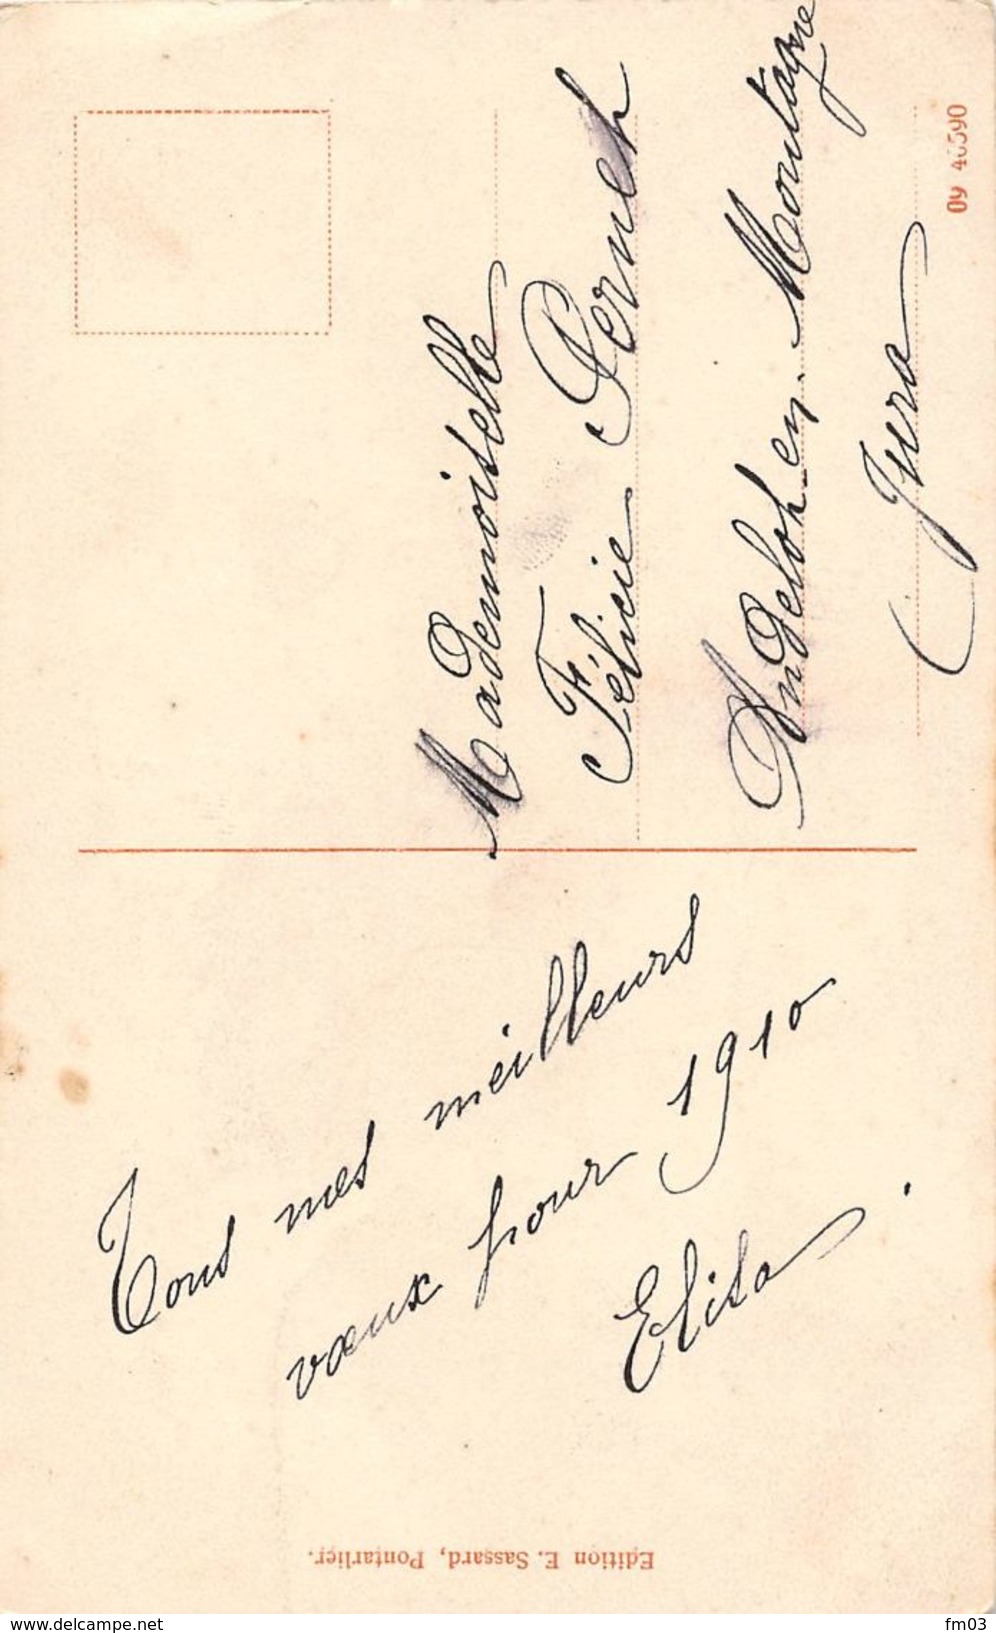 Tous mes meilleurs
vœux pour 1910
Elisa.
Mademoiselle
Félicie Pernet
Andelot en Montagne
Jura
Edition E. Sassard, Pontarlier.
www.delcampe.net
fm03